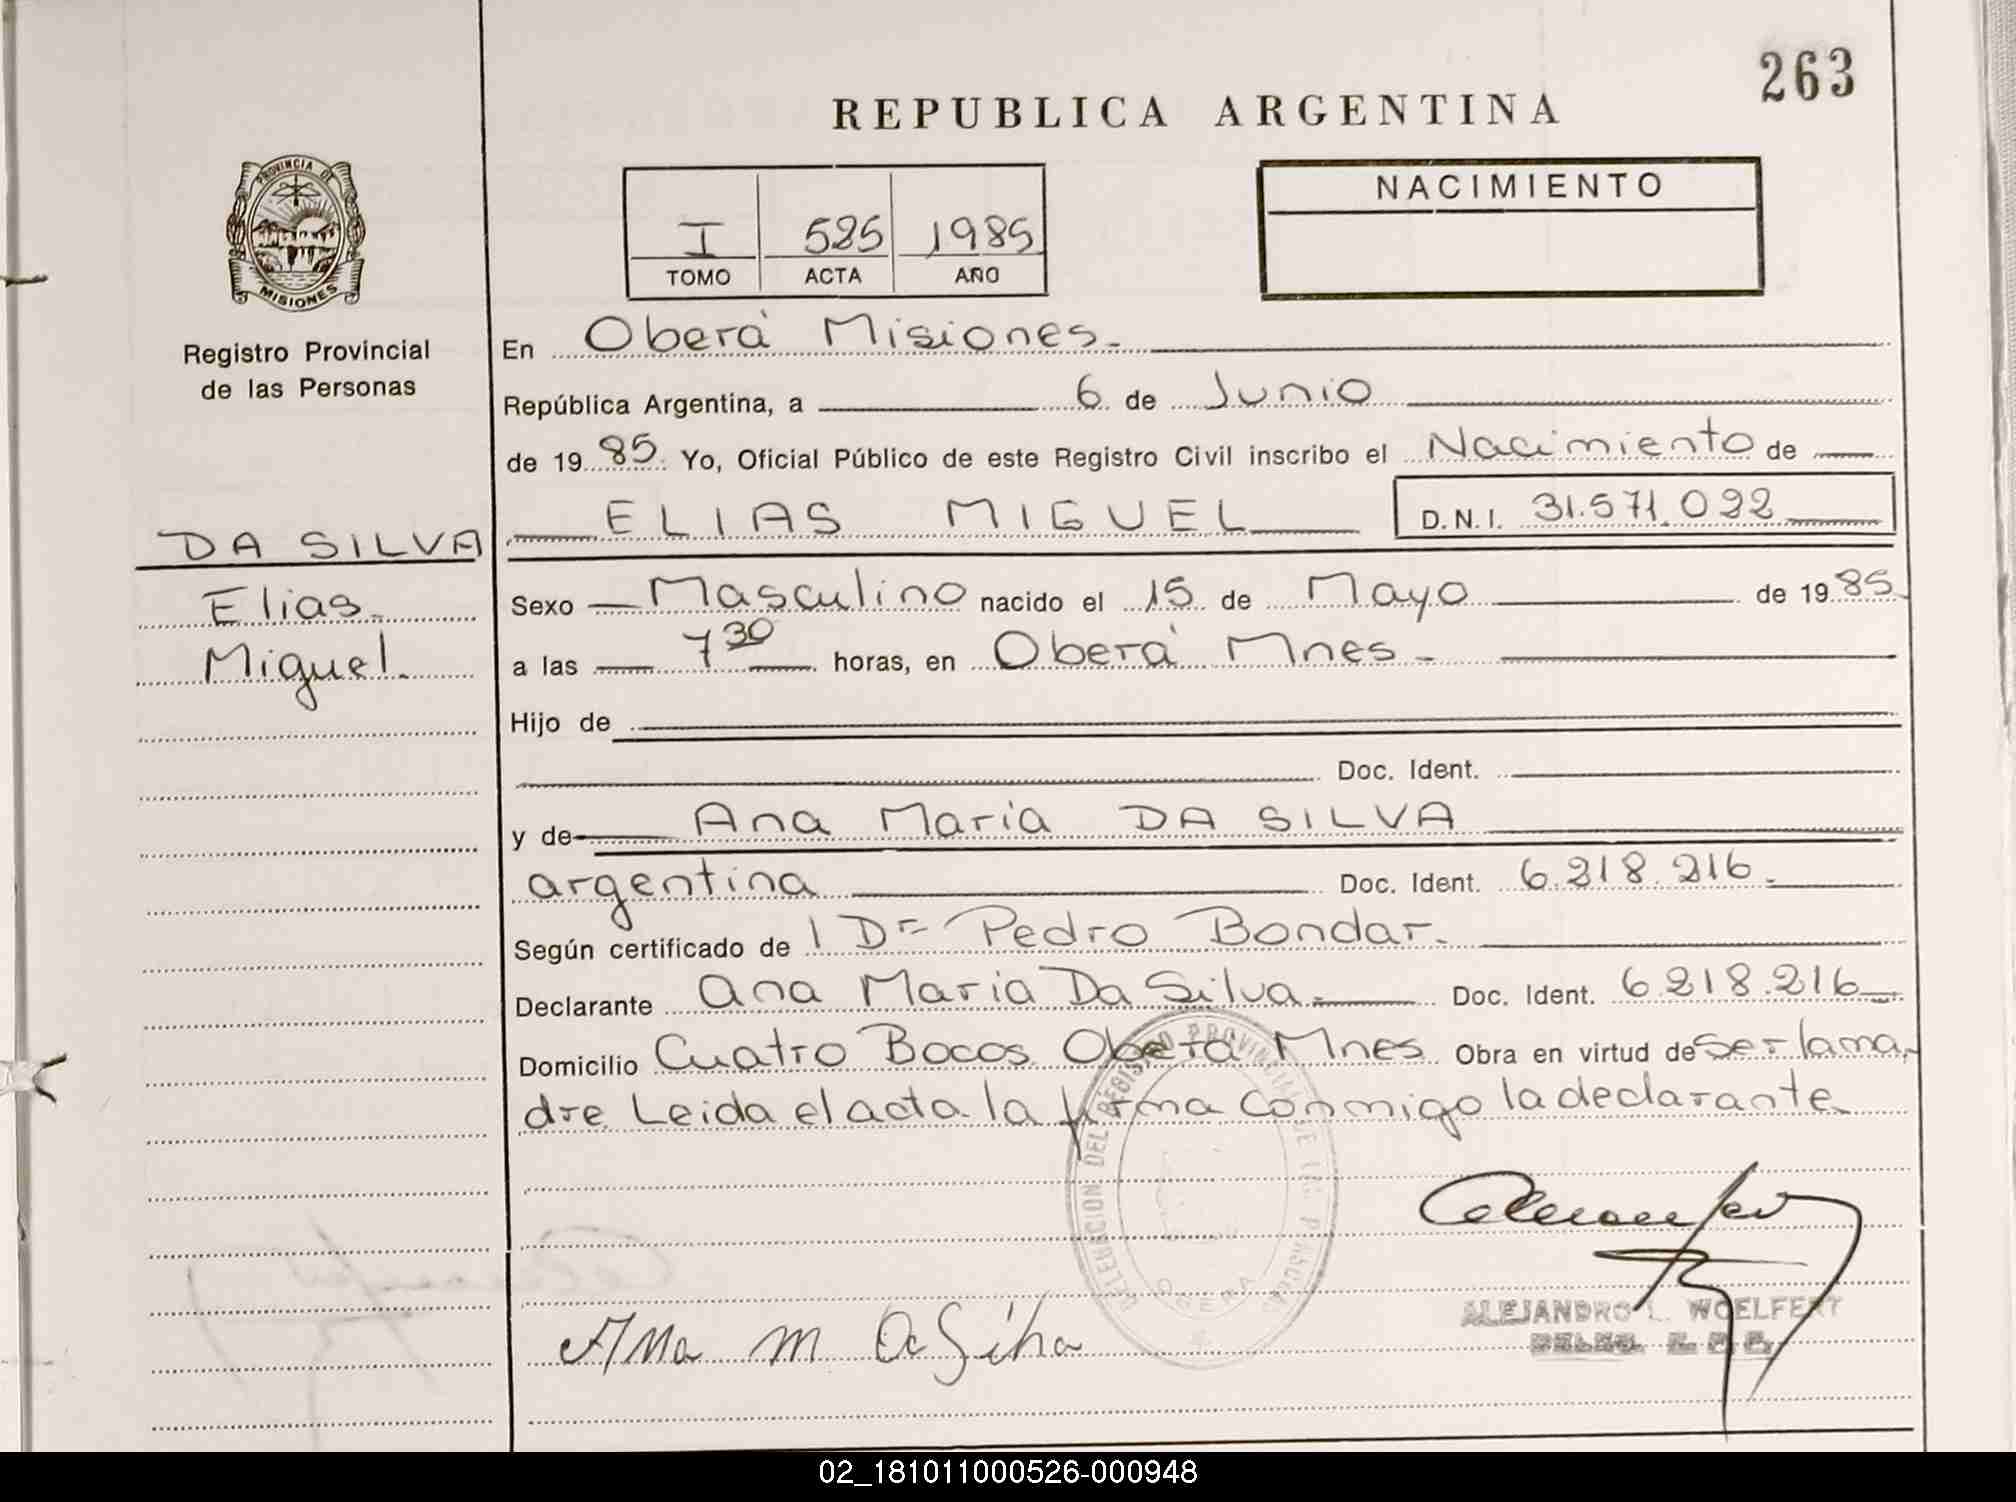 263
REPUBLICA ARGENTINA
PROVINCIA DE
MISIONES
Registro Provincial
de las Personas
I 525 1985
TOMO ACTA AÑO
NACIMIENTO
En Oberá Misiones.
República Argentina, a 6 de Junio
de 1985. Yo, Oficial Público de este Registro Civil inscribo el Nacimiento de
DA SILVA
Elias
Miguel.
ELIAS MIGUEL D.N.I. 31.571.092
Sexo Masculino nacido el 15 de Mayo de 1985
a las 7 30 horas, en Oberá Mnes.
Hijo de
Doc. Ident.
y de Ana Maria DA SILVA
argentina Doc. Ident. 6.218.216.
Según certificado de l Dr Pedro Bondar.
Declarante Ana Maria Da Silva Doc. Ident. 6.218.216
Domicilio Cuatro Bocos Oberá Mnes Obra en virtud de ser la ma
dre. Leida el acta. la firma conmigo la declarante.
DELEGACION DEL REGISTRO PROVINCIAL DE LAS PERSONAS
OBERA
Ana M Da Silva
ALEJANDRO L. WOELFERT
02_181011000526-000948